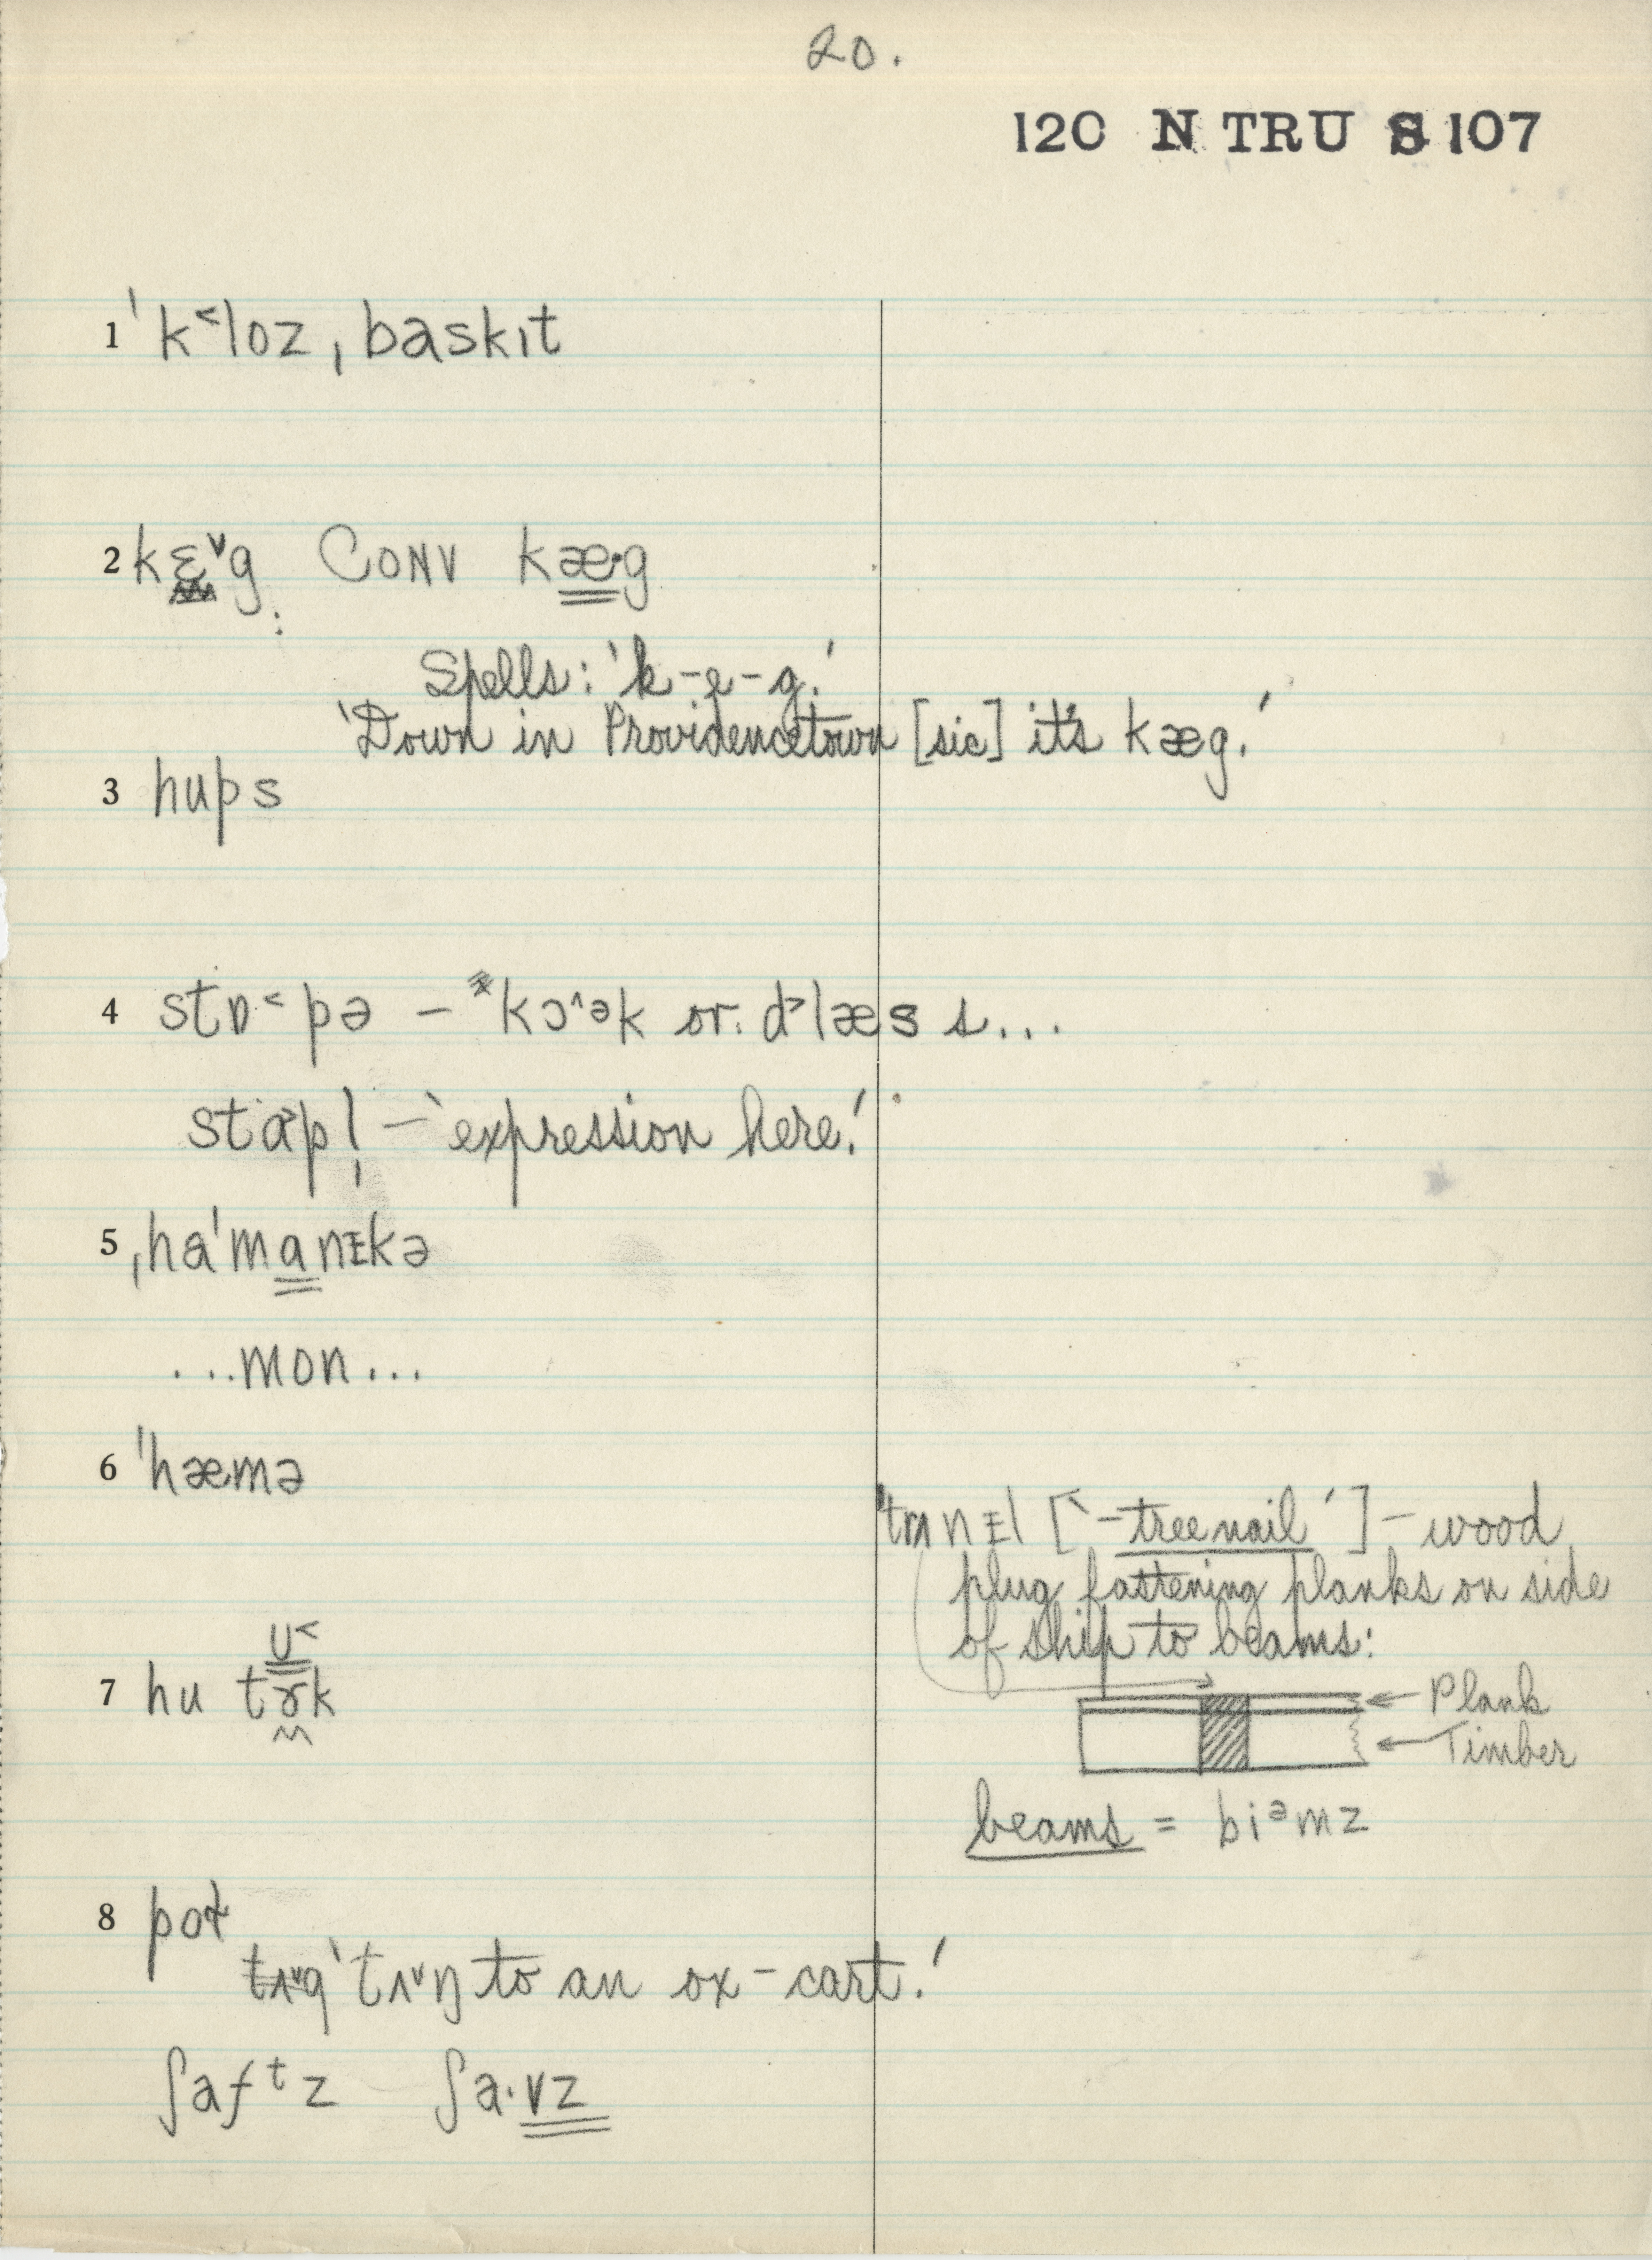 20.
120 N TRU S 107
1 ˈk˂loz ˌbaskɪt
2 kɛ˅g CONV kæ·g
Spells: 'k-e-g.'
'Down in Providencetown [sic] it's kæg.'
3 hups
4 stɒ˂pə – *kɔ^ək or dᶺlæs s...
stap! – 'expression here.'
5 ˌhaˈmanɪkə
...mon...
6 ˈhæmə
ˈtrʌnɪl ['-treenail'] – wood
plug fastening planks on side
of ship to beams:
ʊ˂
7 hu tɤk
Plank
Timber
beams = biᵊmz
8 pot
tʌ˅g 'tʌ˅ŋ to an ox-cart.'
ʃafᵗz ʃa·vz